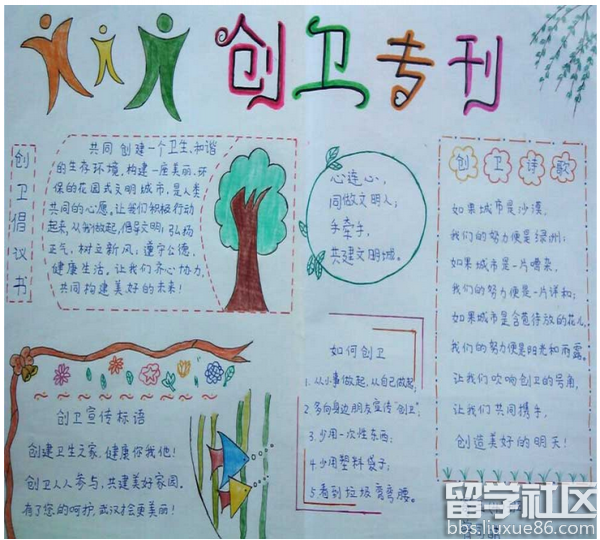 创卫专刊
创卫倡议书
共同创建一个卫生、和谐
的生存环境,构建一座美丽、环
保的花园式文明城市,是人类
共同的心愿,让我们积极行动
起来,从我做起,倡导文明;弘扬
正气,树立新风;遵守公德,
健康生活,让我们齐心协力,
共同构建美好的未来!
心连心,
同做文明人;
手牵手,
共建文明城。
创卫诗歌
如果城市是沙漠,
我们的努力便是绿洲;
如果城市是一片嘈杂,
我们的努力便是一片祥和;
如果城市是含苞待放的花儿,
我们的努力便是阳光和雨露。
让我们吹响创卫的号角,
让我们共同携手,
创造美好的明天!
创卫宣传标语
创建卫生之家,健康你我他!
创卫人人参与,共建美好家园。
有了您的呵护,武汉才会更美丽!
如何创卫
1.从小事做起,从自己做起;
2.多向身边朋友宣传“创卫”;
3.少用一次性东西;
4.少用塑料袋子;
5.看到垃圾弯弯腰。
留学社区
bbs.liuxue86.com